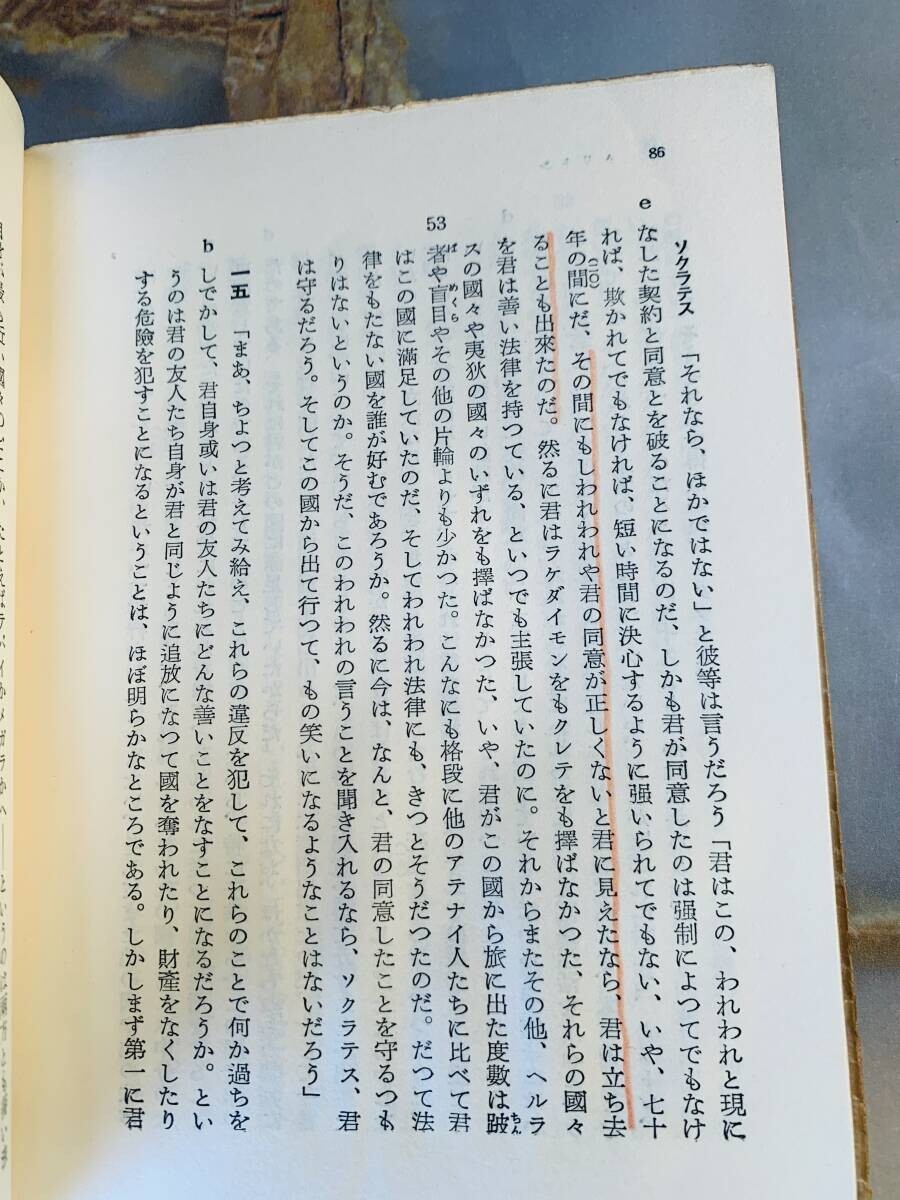 86
ソクラテス 「それなら、ほかではない」と彼等は言うだろう「君はこの、われわれと現に
e なした契約と同意とを破ることになるのだ、しかも君が同意したのは强制によつてでもなけ
れば、欺かれてでもなければ、短い時間に決心するように强いられてでもない、いや、七十
年の間にだ、(二〇)その間にもしわれわれや君の同意が正しくないと君に見えたなら、君は立ち去
ることも出来たのだ。然るに君はラケダイモンをもクレテをも擇ばなかつた、それらの國々
を君は善い法律を持つている、といつでも主張していたのに。それからまたその他、ヘルラ
53 スの國々や夷狄の國々のいずれをも擇ばなかつた、いや、君がこの國から旅に出た度數は跛ちん
者ばや盲目めくらやその他の片輪よりも少かつた。こんなにも格段に他のアテナイ人たちに比べて君
はこの國に滿足していたのだ、そしてわれわれ法律にも、きつとそうだつたのだ。だつて法
律をもたない國を誰が好むであろうか。然るに今は、なんと、君の同意したことを守るつも
りはないというのか。そうだ、このわれわれの言うことを聞き入れるなら、ソクラテス、君
は守るだろう。そしてこの國から出て行つて、もの笑いになるようなことはないだろう」
一五 「まあ、ちよつと考えてみ給え、これらの違反を犯して、これらのことで何か過ちを
b しでかして、君自身或いは君の友人たちにどんな善いことをなすことになるだろうか。とい
うのは君の友人たち自身が君と同じように追放になつて國を奪われたり、財產をなくしたり
する危險を犯すことになるということは、ほぼ明らかなところである。しかしまず第一に君